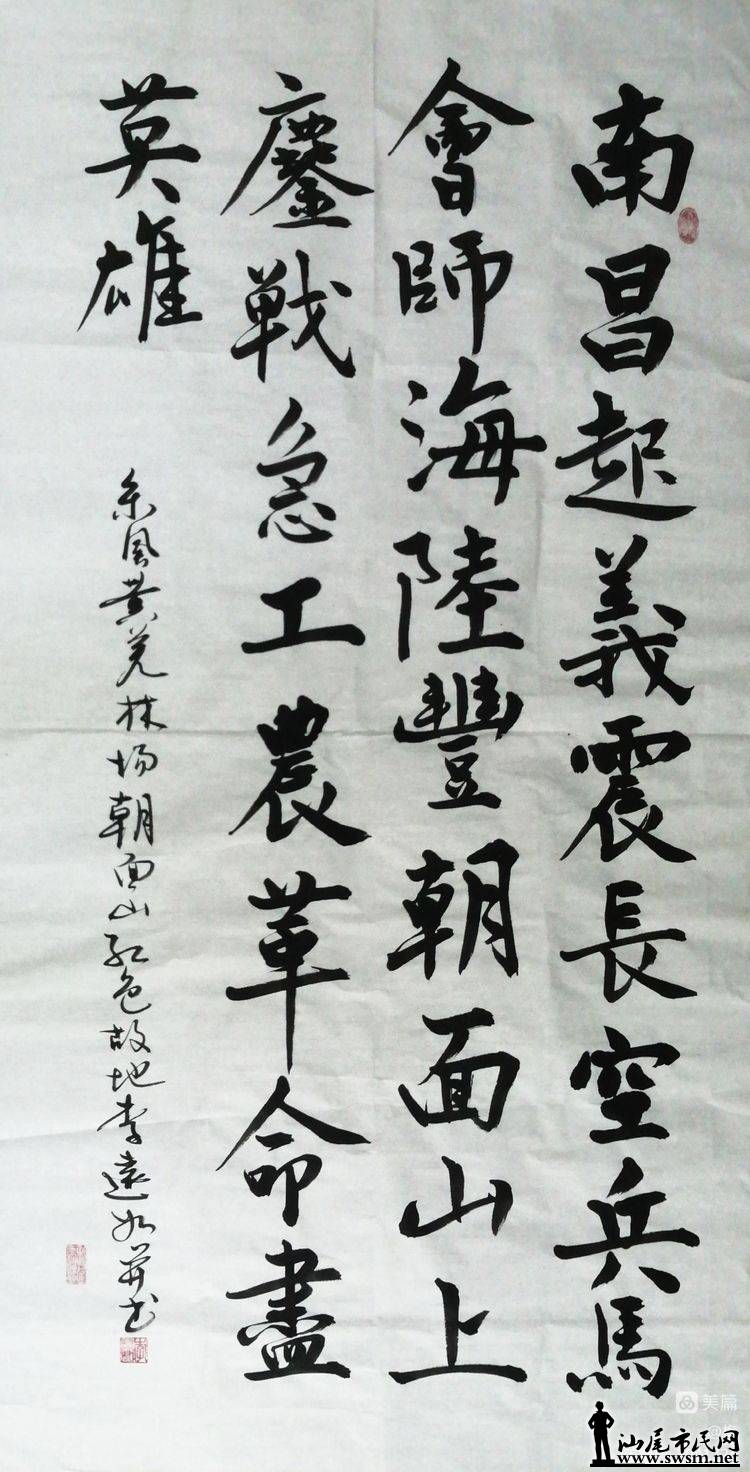 南昌起義震長空兵馬
會師海陸豐朝面山上
鏖戰急工農革命盡
英雄
風黄羌林场朝面山红色故地李遠如并书
美篇
汕尾市民网
www.swsm.net